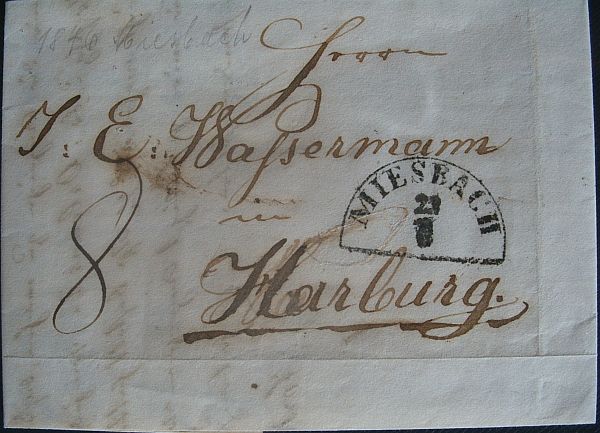 1846 Miesbach
Herrn
J: E: Wassermann
in
Harburg.
8
MIESBACH